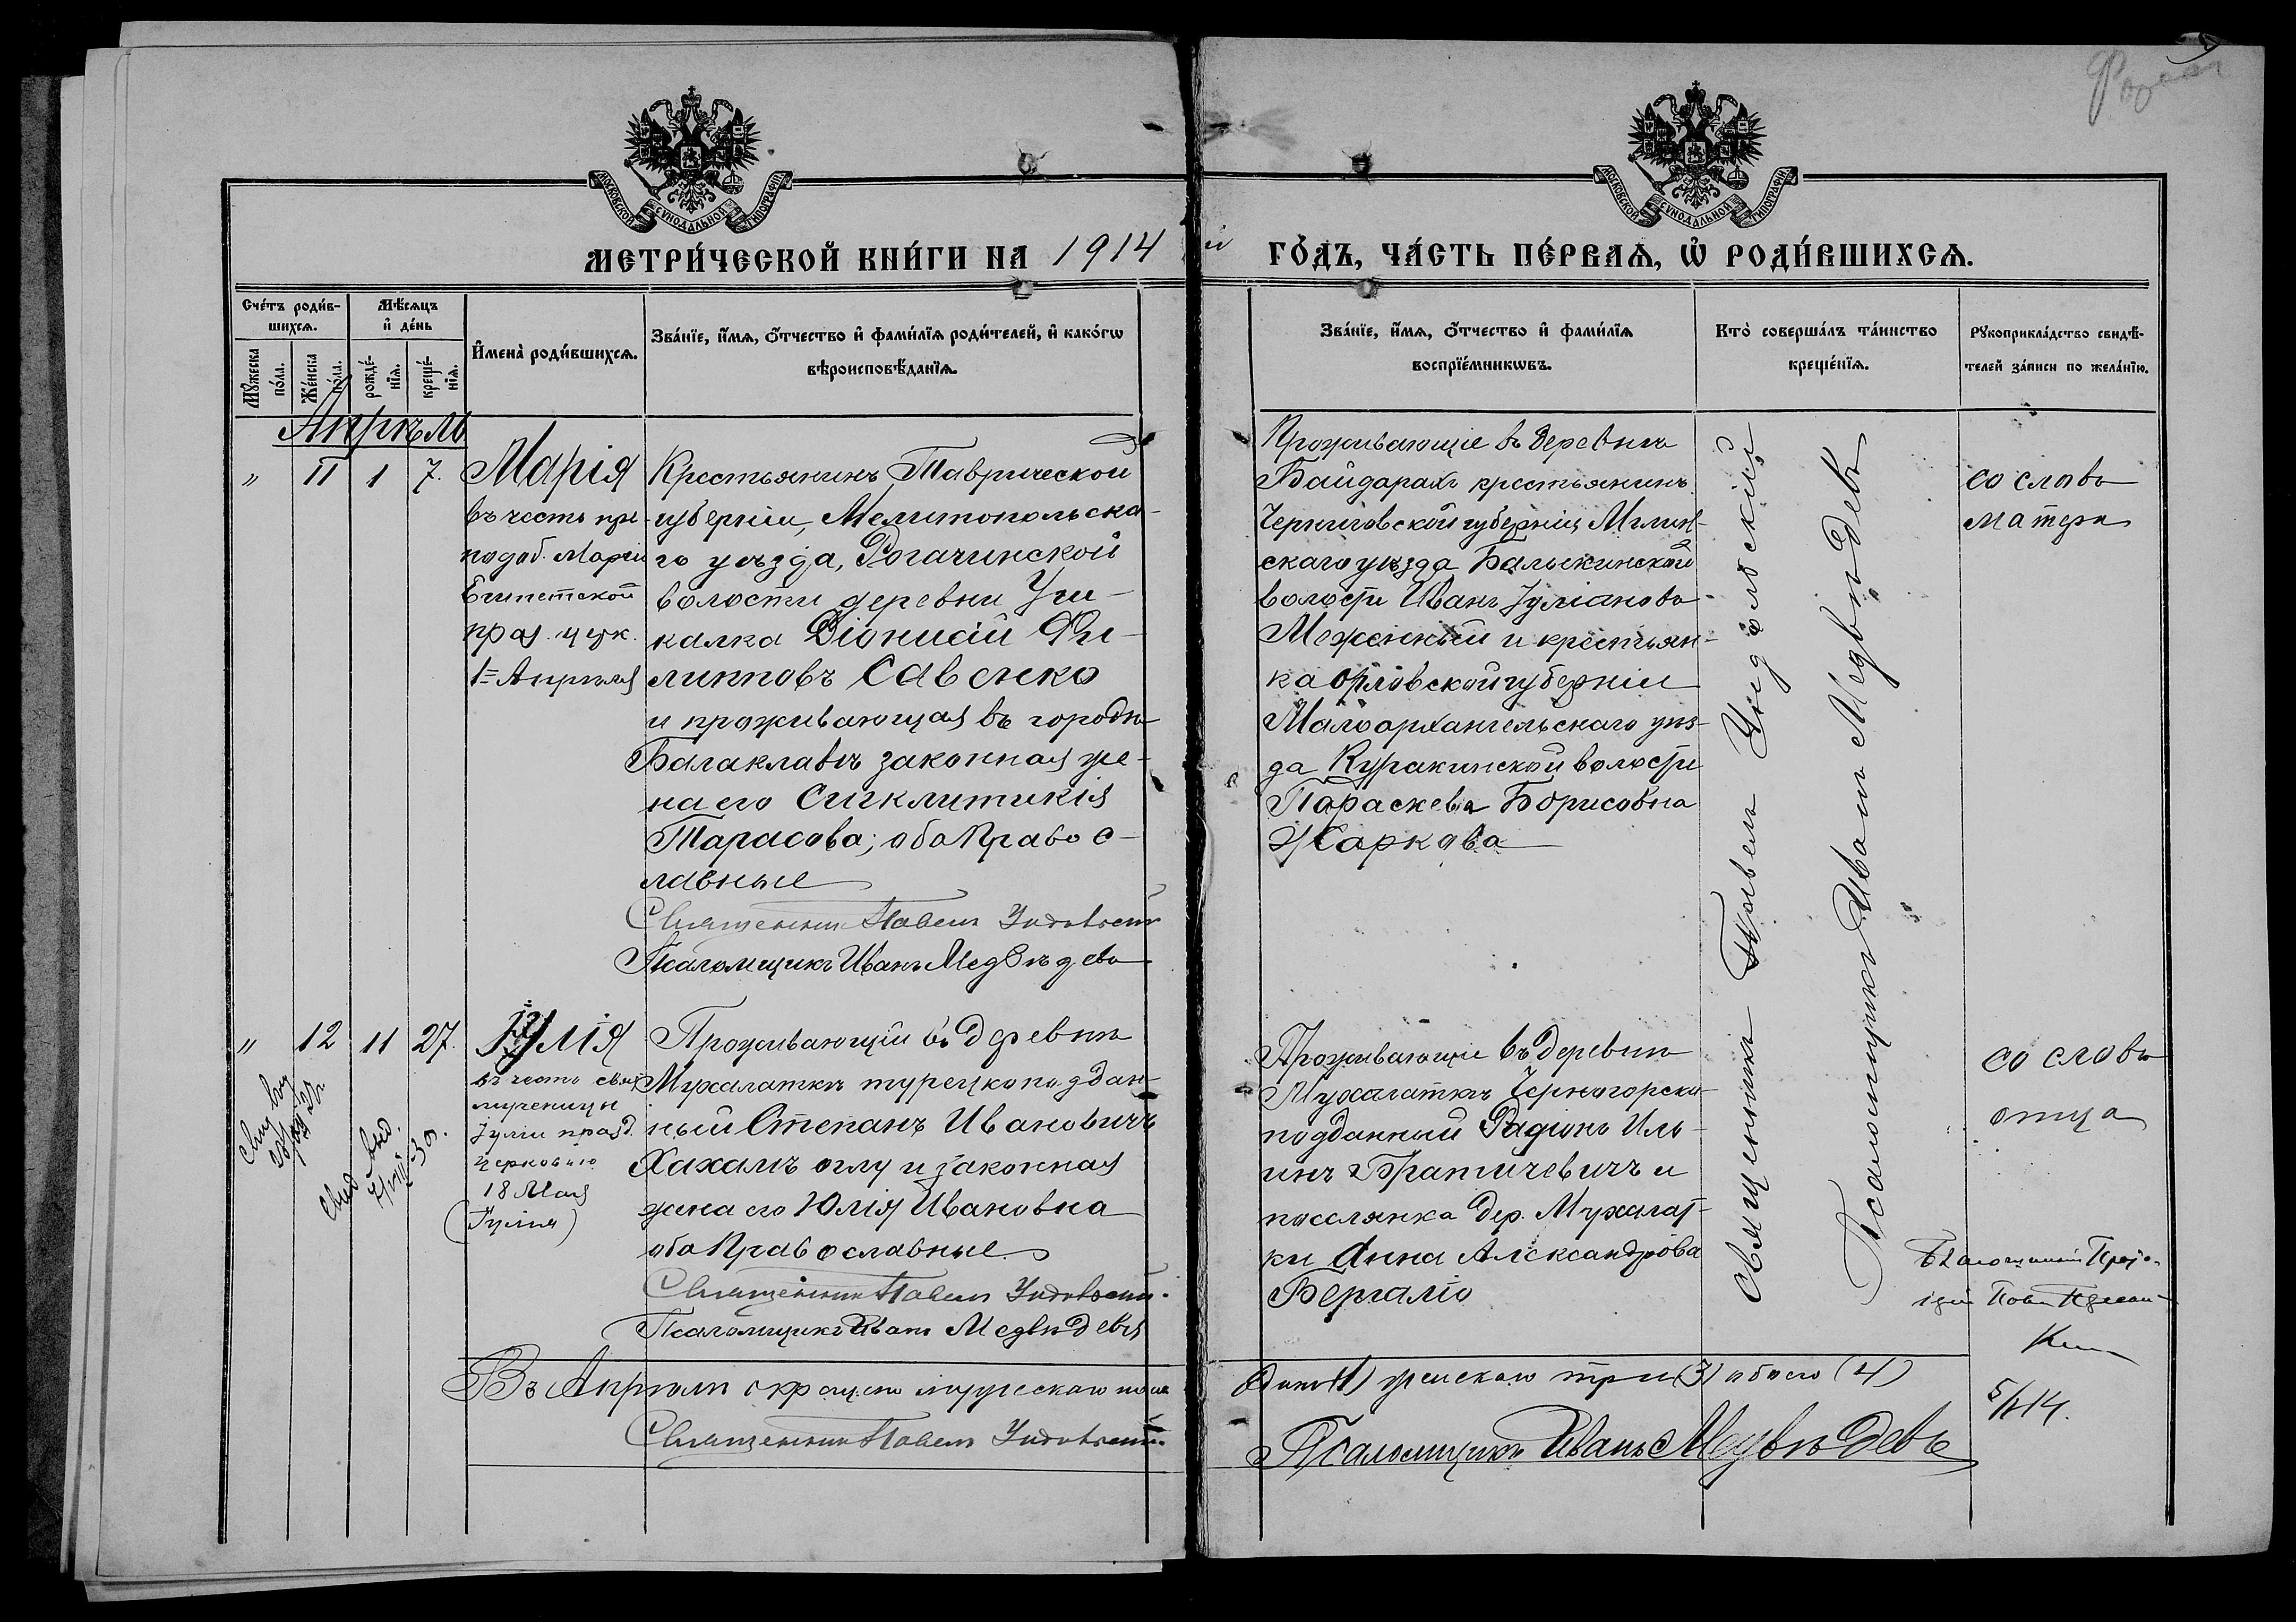 МОСКОВСКОЙ СУНОДАЛЬНОЙ ТИПОГРАФІИ
МОСКОВСКОЙ СУНОДАЛЬНОЙ ТИПОГРАФІИ
МЕТРИ́ЧЕСКОЙ КНИ́ГИ НА 1914 й ГО́ДЪ, ЧА́СТЬ ПЕ́РВАѦ, Ѡ҆ РОДИ́ВШИХСѦ.
Сче́тъ роди́в-
шихсѧ.
Мѣ́сѧцъ
и҆ де́нь
Мꙋ́жеска
по́ла.
Же́нска
по́ла.
рожде́-
нїѧ.
креще́-
нїѧ.
И҆мена̀ роди́вшихсѧ.
Зва́нїе, и҆́мѧ, ѻ҆́тчество и҆ фами́лїѧ роди́телей, и҆ како́гѡ
вѣроисповѣ́данїѧ.
Зва́нїе, и҆́мѧ, ѻ҆́тчество и҆ фами́лїѧ
воспрїе́мникѡвъ.
Кто̀ соверша́лъ та́инство
креще́нїѧ.
Рꙋкоприкла́дство свидѣ́-
телей за́писи по жела́нїю.
Апрѣль
" 11 1 7.
Марія
въ честь пре-
подоб. Маріи
Египетской
праз. церк.
1= Апрѣля
Крестьянинъ Таврической
губерніи, Мелитопольска-
го уѣзда, Рогачинской
волости деревни Уш-
калка Діонисій Фи-
липповъ Савенко
и проживающая въ городѣ
Балаклавѣ законная же-
на его Сигклитикія
Тарасова; оба Правос-
лавные
Священникъ Павелъ Ундольскій
Псаломщикъ Иванъ Медвѣдевъ
Проживающіе въ деревнѣ
Байдарахъ крестьянинъ
Черниговской губерніи Мглин-
скаго уѣзда Балыкинской
волости Иванъ Іуліановъ
Меженный и крестьян-
ка Орловской губерніи
Малоархангельскаго уѣз-
да Куракинской волости
Параскева Борисовна
Жаркова
Священникъ Павелъ Ундольскій
Псаломщикъ Иванъ Медвѣдевъ
со словъ
матери
" 12 11 27.
Іулія
въ честь свя.
мученицы
Іуліи празд.
церковію
18 Мая
(Іулія)
Проживающій въ деревнѣ
Мухалаткѣ турецкоподдан-
ный Степанъ Ивановичъ
Хахамъ оглу и законная
жена его Юлія Ивановна
оба Православные
Священникъ Павелъ Ундольскій
Псаломщикъ Иванъ Медвѣдевъ
Проживающіе въ деревнѣ
Мухалаткѣ Черногорско-
подданный Радіонъ Иль-
инъ Братичевичъ и
поселянка дер. Мухалат-
ки Анна Александрова
Бергаліо
со словъ
отца
Въ Апрѣлѣ окрещено мужескаго пола одинъ (1) женскаго три (3) обоего (4)
Священникъ Павелъ Ундольскій
Псаломщикъ Иванъ Медвѣдевъ